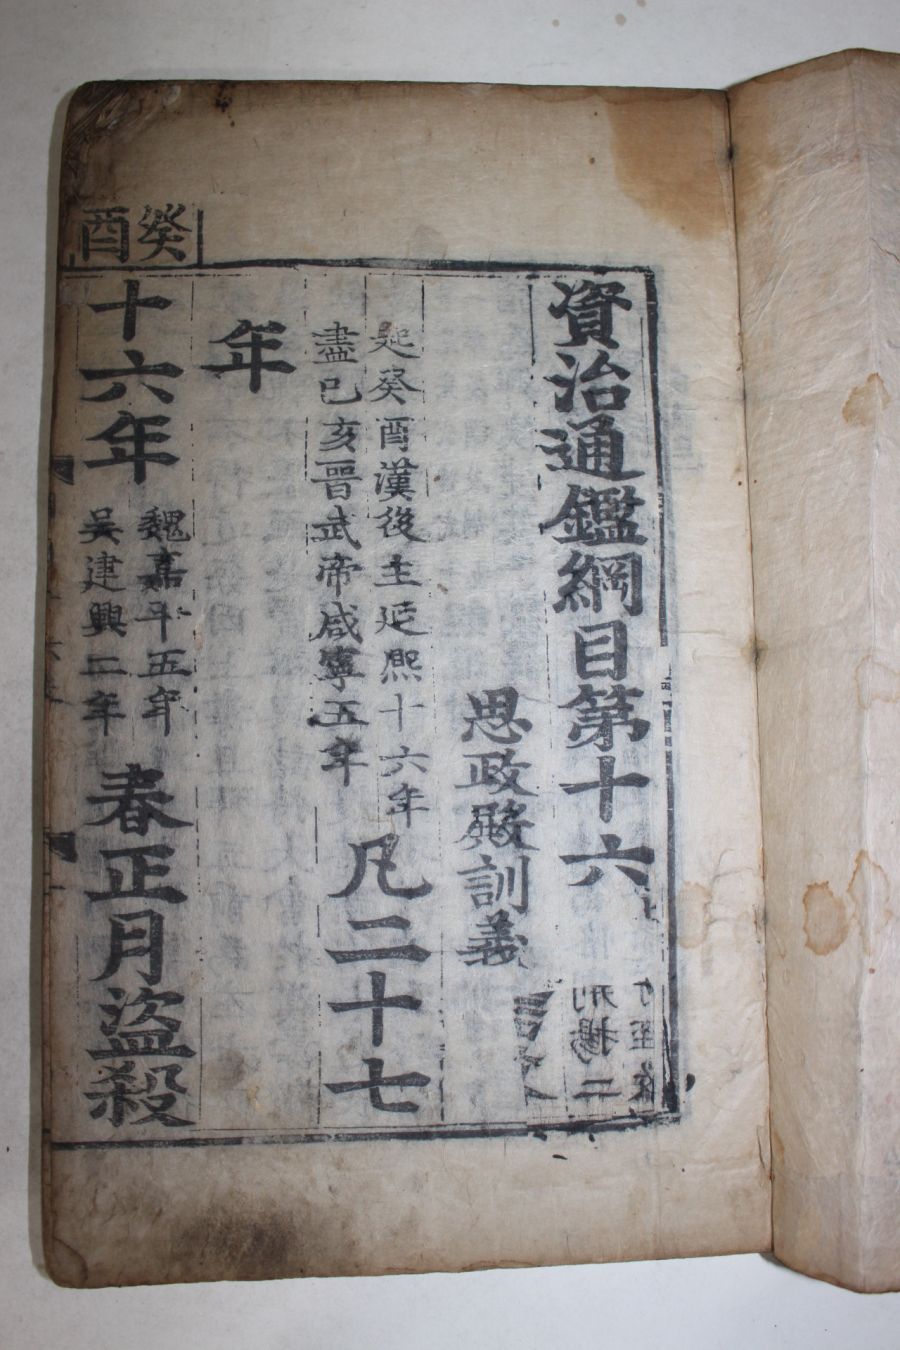 資治通鑑綱目第十六上
思政殿訓義
起癸酉漢後主延熙十六年
盡己亥晉武帝咸寧五年
凡二十七
年
癸酉
十六年
魏嘉平五年
吳建興二年
春正月盜殺